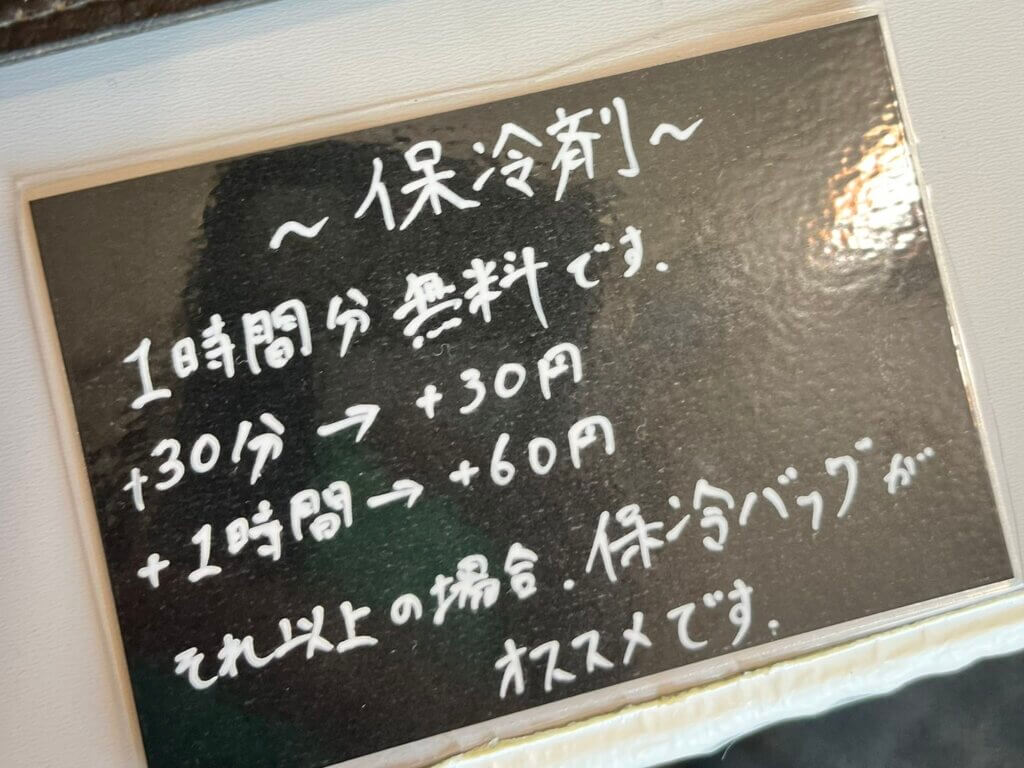 ～保冷剤～
1時間分無料です.
+30分→+30円
+1時間→+60円
それ以上の場合.保冷バッグが
オススメです.